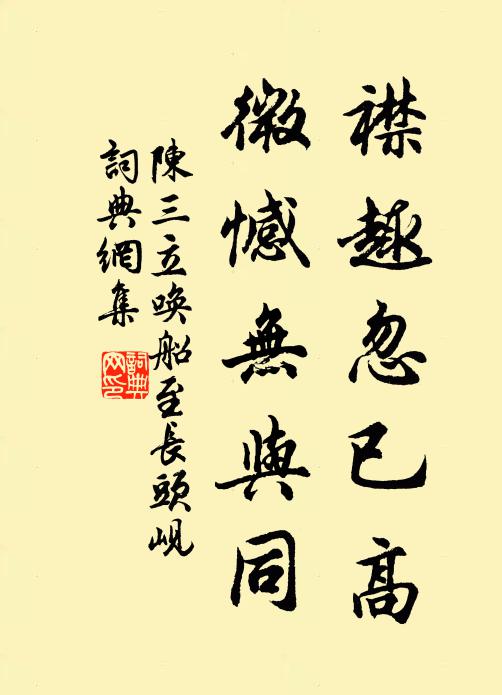 襟趣忽已高
微憾無與同
陳三立喚船至長頭峴
詞典網集
詞典網印